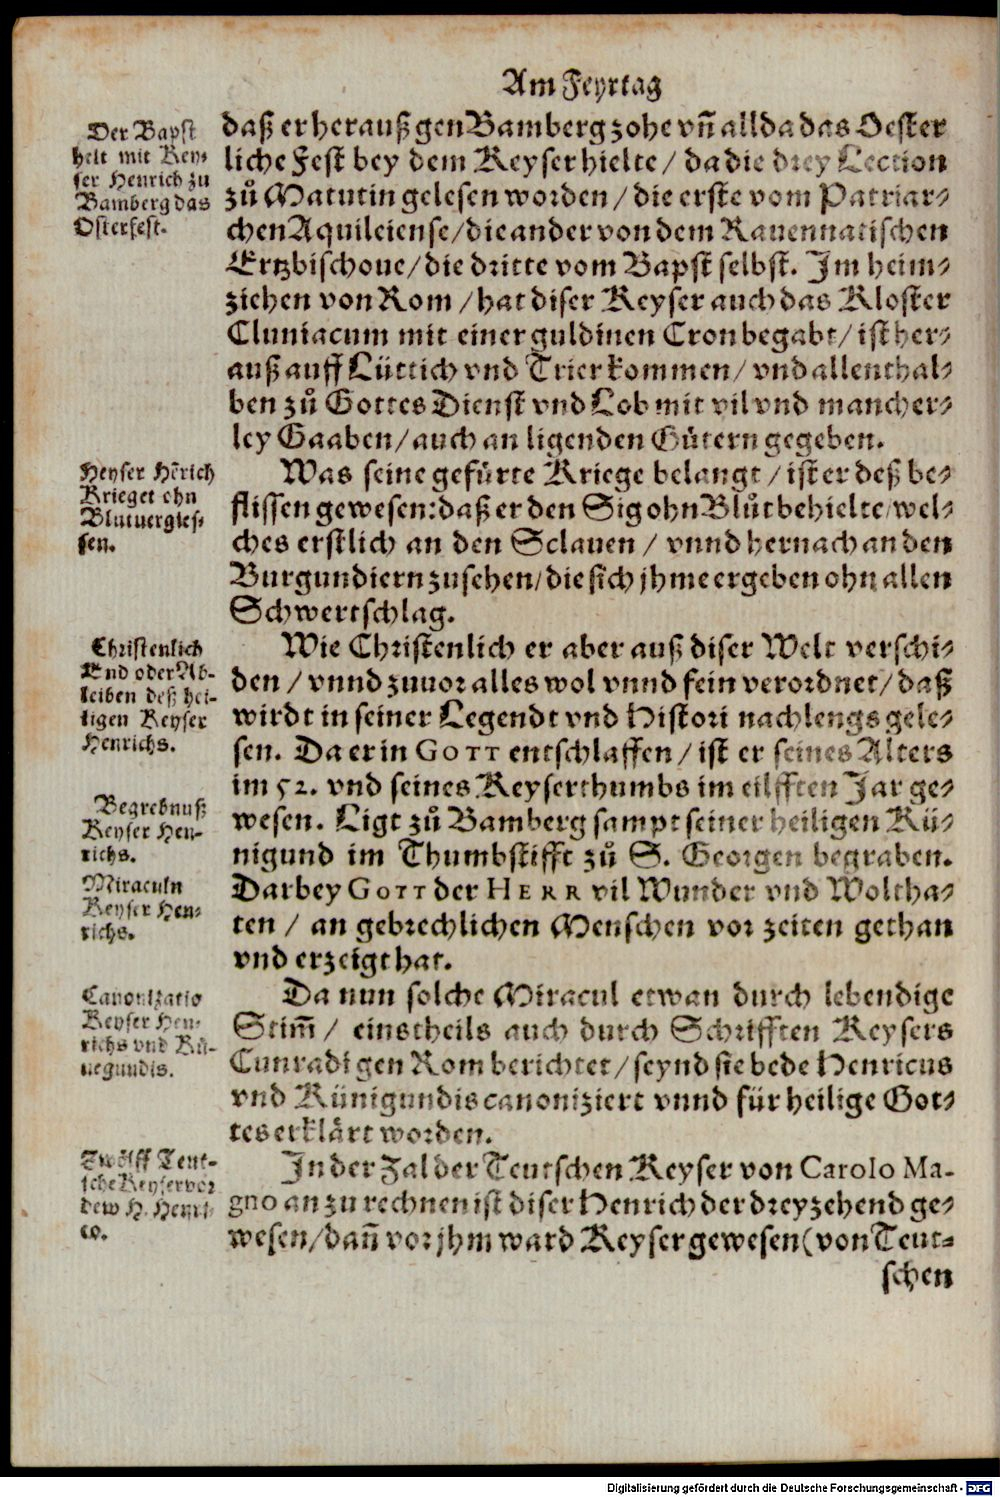 Am Feyrtag
Der Bapst
helt mit Key-
ser Henrich zu
Bamberg das
Osterfest.
daß er herauß gen Bamberg zohe vn̄ allda das Oester
liche Fest bey dem Keyser hielte / da die drey Lection
zů Matutin gelesen worden / die erste vom Patriar-
chen Aquileiense / die ander von dem Rauennatischen
Ertzbischoue / die dritte vom Bapst selbst. Im heim-
ziehen von Rom / hat diser Keyser auch das Kloster
Cluniacum mit einer guldinen Cron begabt / ist her-
auß auff Lüttich vnd Trier kommen / vnd allenthal-
ben zů Gottes Dienst vnd Lob mit vil vnd mancher-
ley Gaaben / auch an ligenden Gütern gegeben.
Keyser Hērich
Krieget ohn
Blutuergies-
sen.
Was seine gefürte Kriege belangt / ist er deß be-
flissen gewesen: daß er den Sig ohn Blůt behielte / wel-
ches erstlich an den Sclauen / vnnd hernach an den
Burgundiern zusehen / die sich jhme ergeben ohn allen
Schwertschlag.
Christenlich
End oder Ab-
leiben deß hei-
ligen Keyser
Henrichs.
Wie Christenlich er aber auß diser Welt verschi-
den / vnnd zuuor alles wol vnnd fein verordnet / daß
wirdt in seiner Legendt vnd Histori nachlengs gele-
sen. Da er in GOTT entschlaffen / ist er seines Alters
im 52. vnd seines Keyserthumbs im eilfften Jar ge-
Begrebnuß
Keyser Hen-
richs.
wesen. Ligt zů Bamberg sampt seiner heiligen Kü-
nigund im Thumbstifft zů S. Georgen begraben.
Miraculn
Keyser Hen-
richs.
Darbey GOTT der HERR vil Wunder vnd Woltha-
ten / an gebrechlichen Menschen vor zeiten gethan
vnd erzeigt hat.
Canonizatio
Keyser Hen-
richs vnd Kü-
negundis.
Da nun solche Miracul etwan durch lebendige
Stim̄ / einstheils auch durch Schrifften Keysers
Cunradi gen Rom berichtet / seynd sie bede Henricus
vnd Künigundis canoniziert vnnd für heilige Got-
tes erklärt worden.
Zwölff Teut-
sche Keyser vor
dem H. Henri-
co.
In der Zal der Teutschen Keyser von Carolo Ma-
gno an zu rechnen ist diser Henrich der dreyzehend ge-
wesen / dañ vor jhm ward Keyser gewesen (von Teut-
schen
Digitalisierung gefördert durch die Deutsche Forschungsgemeinschaft - DFG